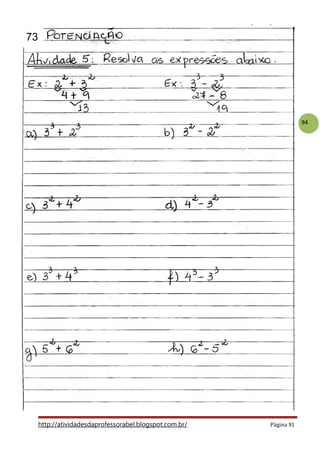 73 POTENCIAÇÃO
Atividade 5: Resolva as expressões abaixo.
Ex: 2² + 3² Ex: 3³ - 2³
4 + 9 27 - 8
13 19
94
a) 3³ + 2³ b) 3² - 2²
c) 3² + 4² d) 4² - 3²
e) 3³ + 4³ f) 4³ - 3³
g) 5² + 6² h) 6² - 5²
http://atividadesdaprofessorabel.blogspot.com.br/ Página 91